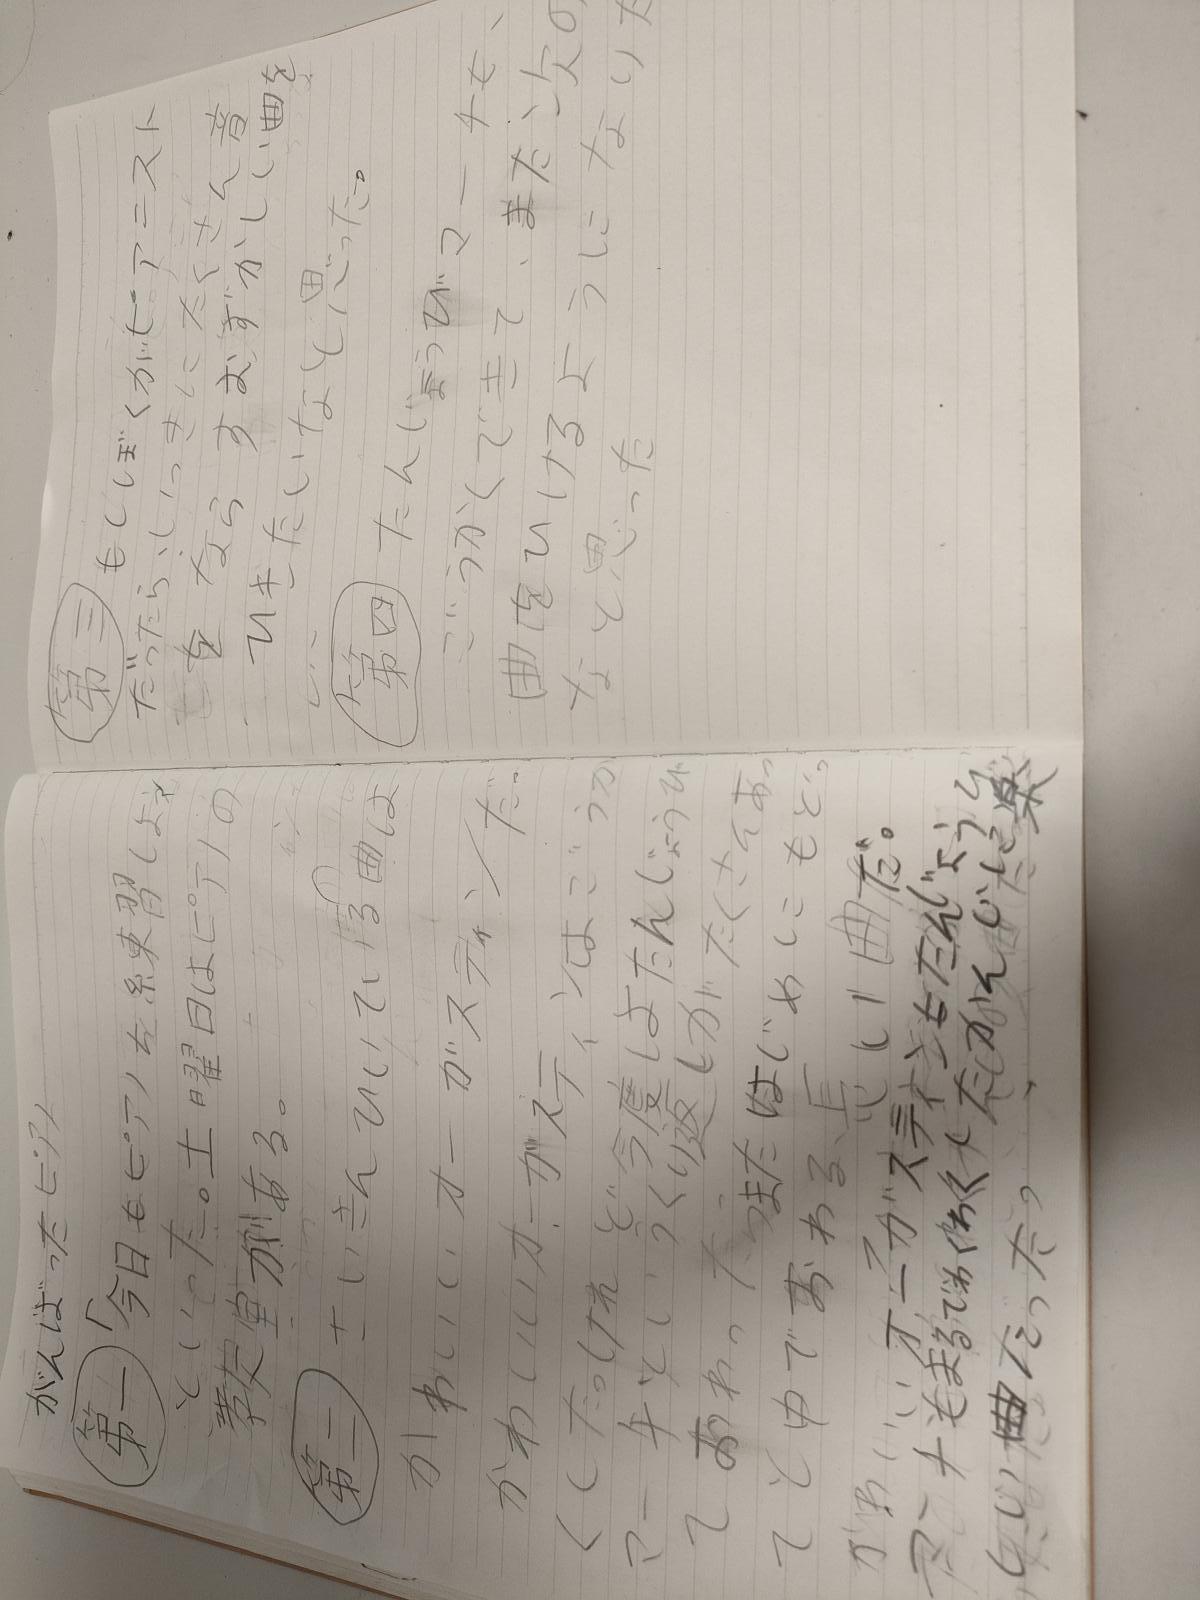 がんばったピアノ
第一 「今日もピアノを練習しよう
といった。土曜日はピアノの
教室がある。
第二 さいきんひいている曲は
かわいいオーガスティンだ。
かわいいオーガスティンはごうか
くしたっけれど今度はたんじょうび
マーチといつくり返しがたくさんあっ
ておわったらまたはじめにもどっ
てとゆでおわる、長い曲だ。
かわいいオーガスティンもたんじょうび
マーチもまるでわくわくしたかんじで楽
しい曲だった。
第三 もしぼくがピアニスト
だったら、いっきにたくさん音
をならすむずかしい曲を
ひきたいなと思った。
第四 たんじょうびマーチも、
ごうかくできて、またつ次の
曲をひけるようになりた
なと思った